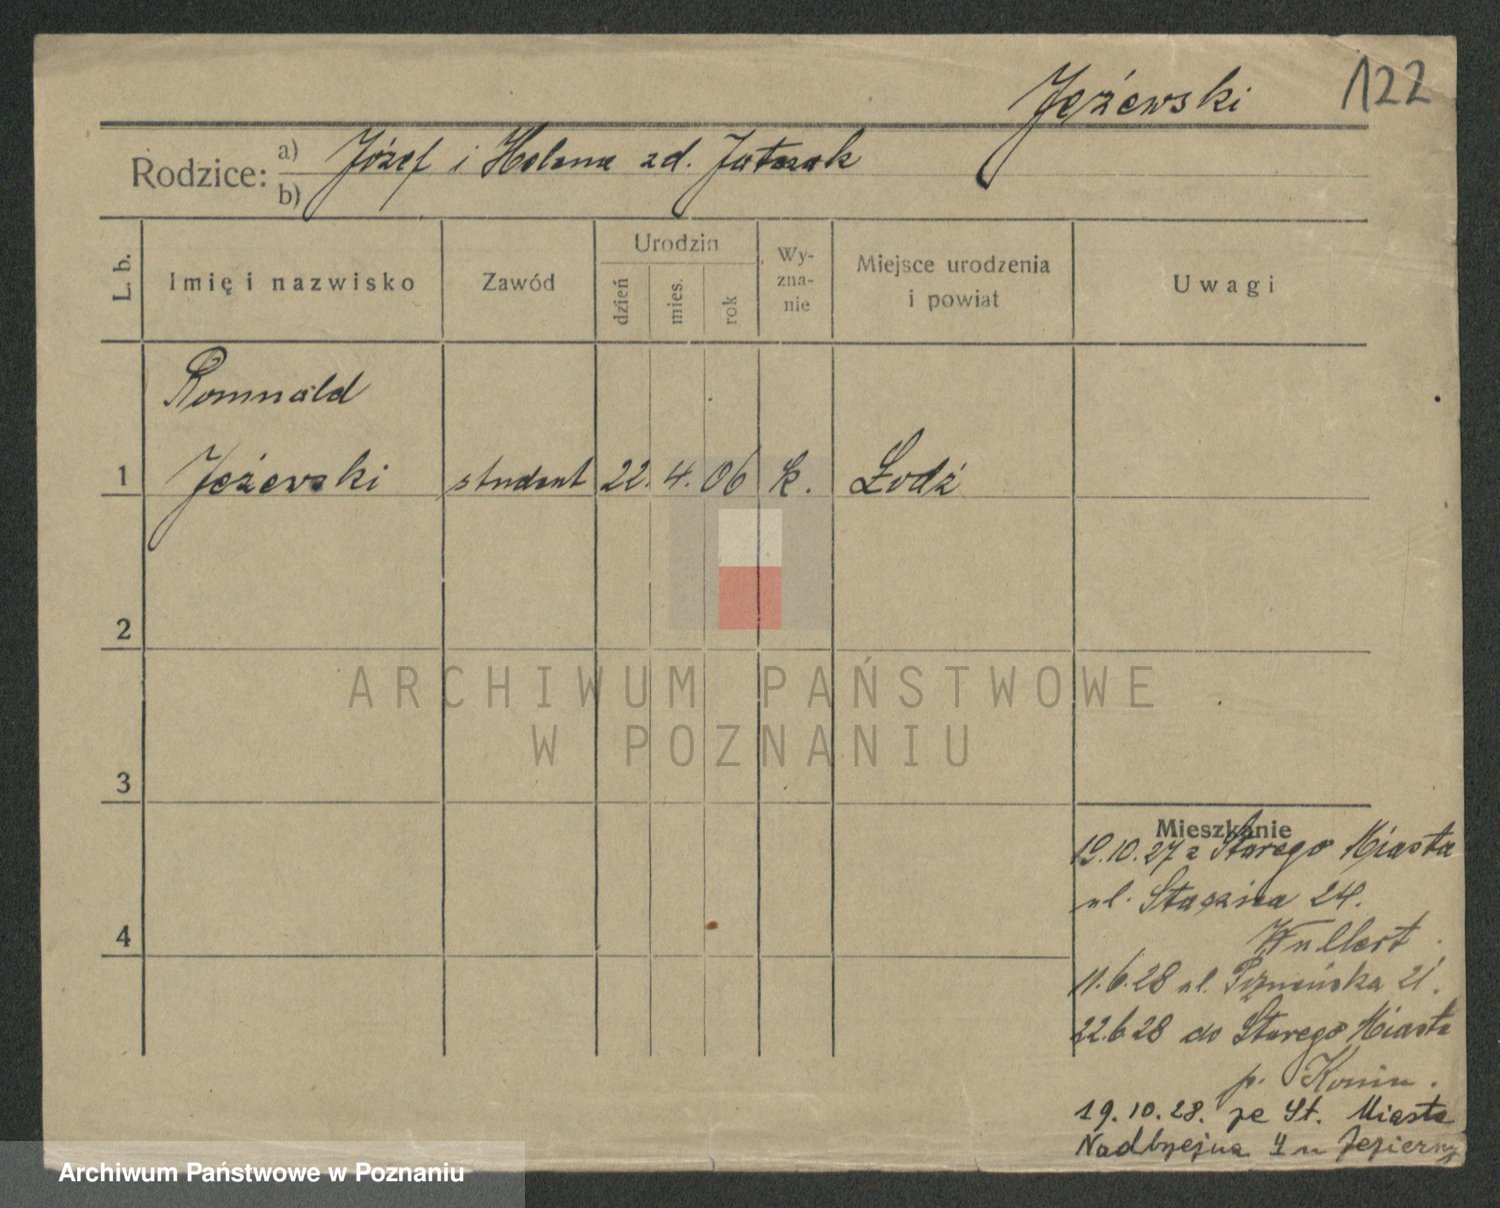 Jeżewski
122
Rodzice: a) Józef i Helena zd.
b)
L. b.
Imię i nazwisko
Zawód
Urodzin
dzień
mies.
rok
Wy-
zna-
nie
Miejsce urodzenia
i powiat
Uwagi
Romuald
1 Jeżewski student 22. 4. 06 k. Łódź
2
3
4
ARCHIWUM PAŃSTWOWE
W POZNANIU
Mieszkanie
19.10.27 z Starego Miasta
ul. Staszica 24.
11.6.28 ul. 21.
22.6 28 do Starego Miasta
p. Konin.
19.10.28. ze St. Miasta
Archiwum Państwowe w Poznaniu